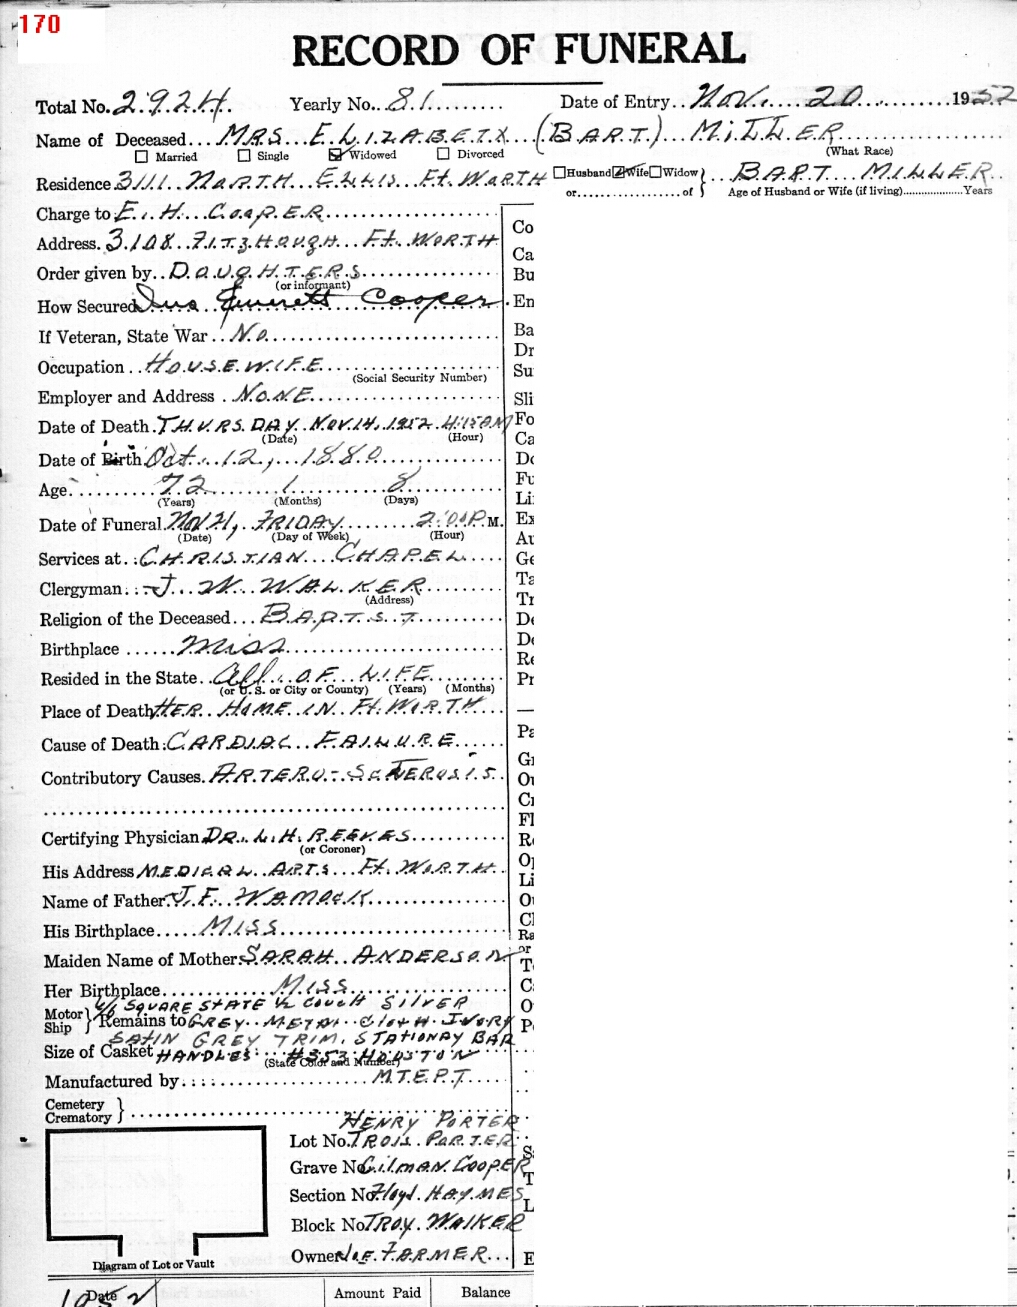 170
RECORD OF FUNERAL
Total No. 2924 Yearly No. 81 Date of Entry Nov. 20 1952
Name of Deceased MRS ELIZABETX (BART.) MILLER
(What Race)
Married Single Widowed Divorced
Residence 3111 NORTH ELLIS Ft. WORTH Husband Wife Widow } BART MILLER
or of Age of Husband or Wife (if living) Years
Charge to E. H. COOPER
Address. 3108 FITZHOUGH Ft. WORTH
Order given by DAUGHTERS
(or informant)
How Secured Emmett Cooper
If Veteran, State War No
Occupation HOUSEWIFE
(Social Security Number)
Employer and Address NONE
Date of Death THURSDAY NOV. 14, 1952 4:15 AM
(Date) (Hour)
Date of Birth Oct. 12, 1880
Age 72 1 8
(Years) (Months) (Days)
Date of Funeral Nov 21, FRIDAY 2:00 P.M.
(Date) (Day of Week) (Hour)
Services at CHRISTIAN CHAPEL
Clergyman J. W. WALKER
(Address)
Religion of the Deceased BAPTST
Birthplace Miss
Resided in the State All OF LIFE
(or U. S. or City or County) (Years) (Months)
Place of Death HER HOME IN Ft. WORTH
Cause of Death CARDIAC FAILURE
Contributory Causes. ARTERO-
Certifying Physician DR. L. H. REEVES
(or Coroner)
His Address MEDICAL ARTS Ft. WORTH
Name of Father J. F. WAMOCK
His Birthplace MISS
Maiden Name of Mother SARAH ANDERSON
Her Birthplace MISS
6/6 SQUARE STATE 1/2 COUCH SILVER
Motor Ship } Remains to GREY METAL CLOTH IVORY
SATIN GREY TRIM, STATIONAY BAR
Size of Casket HANDLES #353 HOUSTON
(State Color and Number)
Manufactured by M.T.E.P.T.
Cemetery Crematory }
HENRY PORTER
Lot No. TROIS PORTER
Grave No. GILMAN COOPER
Section No. Floyd HAYMES
Block No. TROY WALKER
Owner Joe FARMER
Diagram of Lot or Vault
Date Amount Paid Balance
1952
Co
Ca
Bu
En
Ba
Dr
Su
Sli
Fo
Ca
Do
Fu
Li
Ex
Au
Ge
Ta
Tr
De
De
Re
Pr
Pa
Gr
Ou
Cr
Fl
Re
Op
Li
Ou
Cl
Ra
or
T
C
O
P
S
T
L
E